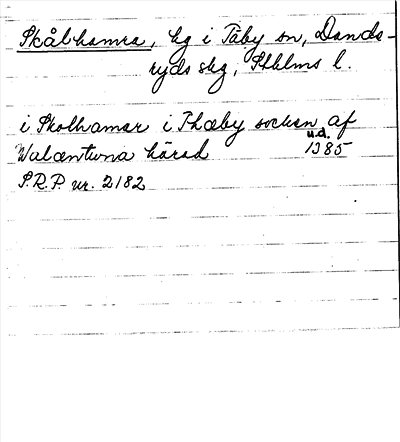 Skålhamra, hg i Täby sn, Dande-
ryds skg, Sthlms l.
i Skolhamar i Thæby sockan af
Walæntuna härad u.d. 1385
S.R.P. nr. 2182